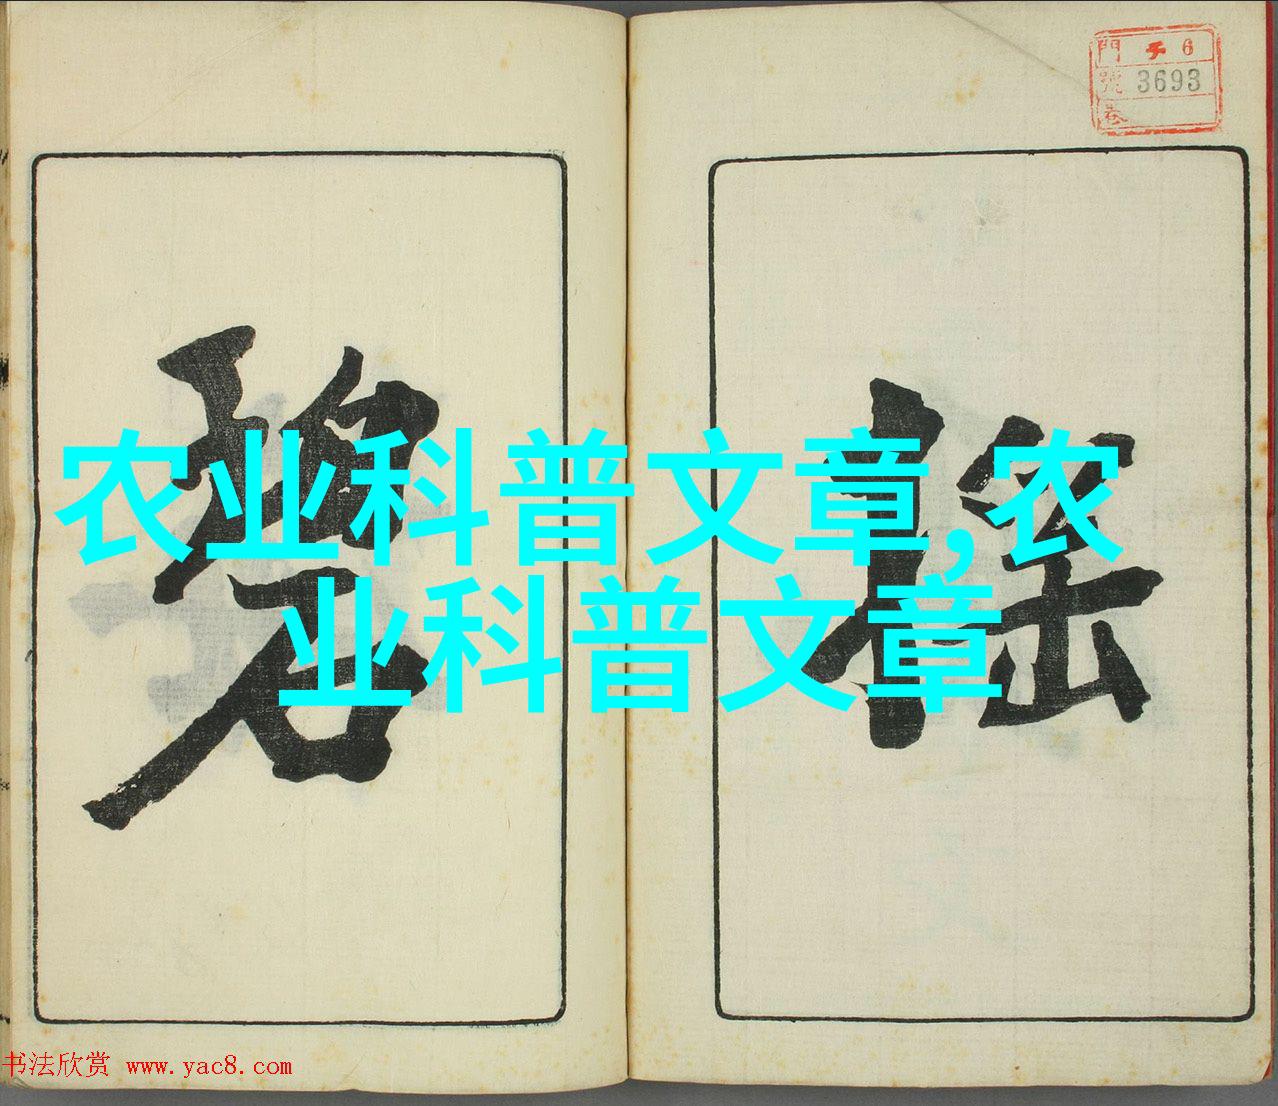 門 チ 6
號 3693
巻
搖
碧
农业科普文章,农
业科普文章
书法欣赏 www.yac8.com